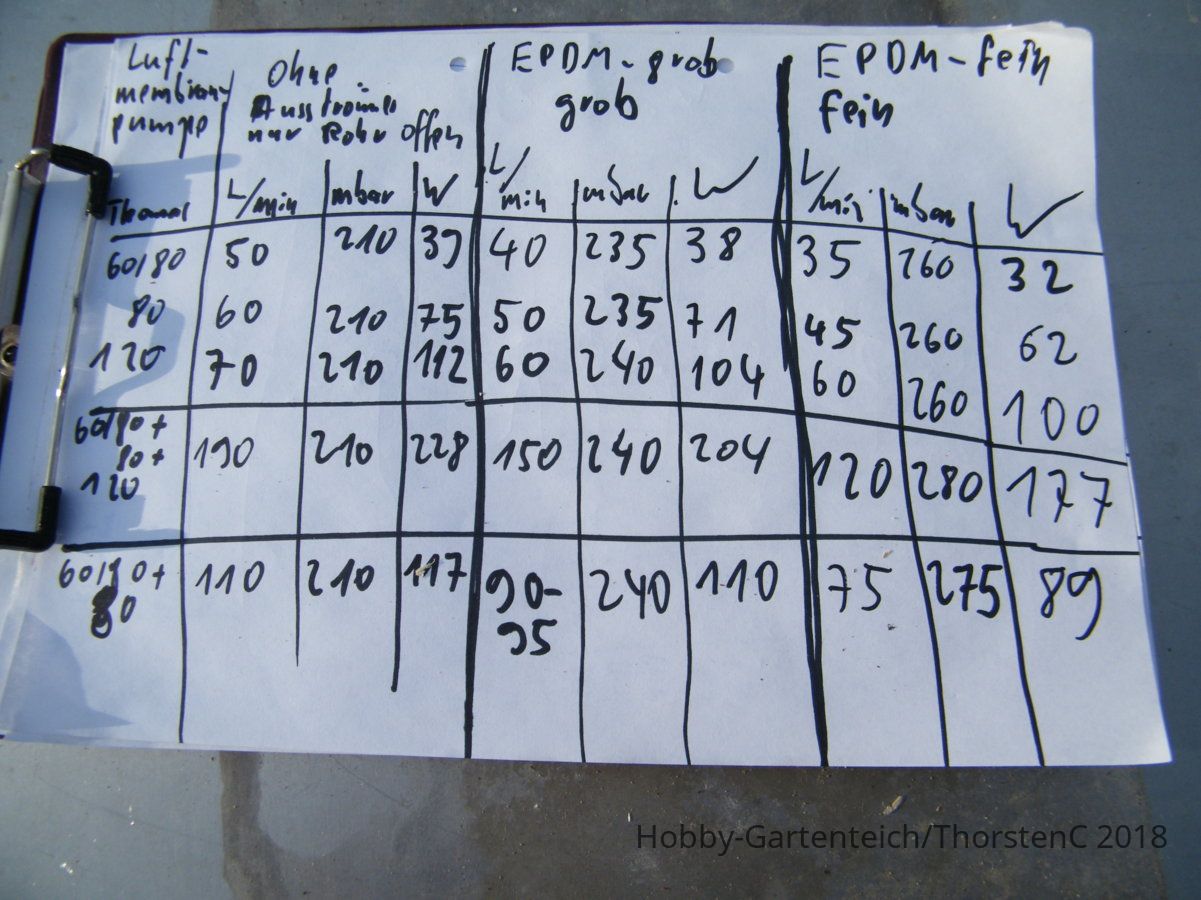 Luft- Ohne EPDM-grob EPDM-fein
membran- Ausströmer grob fein
pumpe nur Rohr offen
Thomas L/min mbar W L/min mbar W L/min mbar W
60/80 50 210 39 40 235 38 35 260 32
80 60 210 75 50 235 71 45 260 62
120 70 210 112 60 240 104 60 260 100
60/80+ 190 210 228 150 240 204 120 280 177
80+
120
60/80+ 110 210 117 90- 240 110 75 275 89
80 95
Hobby-Gartenteich/ThorstenC 2018